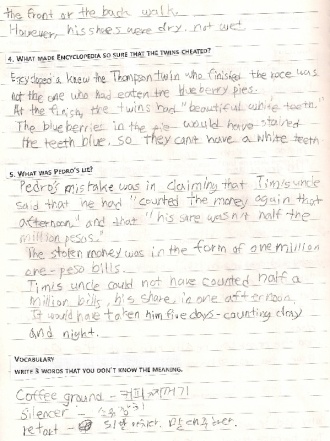 the front or the back walk.
However, his shoes were dry, not wet
4. WHAT MADE ENCYCLOPEDIA SO SURE THAT THE TWINS CHEATED?
Encyclopedia knew the Thompson twin who finished the race was
not the one who had eaten the blueberry pies.
At the finish, the twins had "beautiful white teeth."
The blueberries in the pie would have stained
the teeth blue, so they can't have a white teeth
5. WHAT WAS PEDRO'S LIE?
Pedro's mistake was in claiming that Timis uncle
said that he had "counted the money again that
afternoon" and that "his sare wasn't half the
million pesos."
The stolen money was in the form of one million
one-peso bills.
Timis uncle could not have counted half a
million bills, his share in one afternoon.
It would have taken him five days - counting day
and night.
VOCABULARY
WRITE 3 WORDS THAT YOU DON'T KNOW THE MEANING.
Coffee ground = 커피
Silencer -
retort -